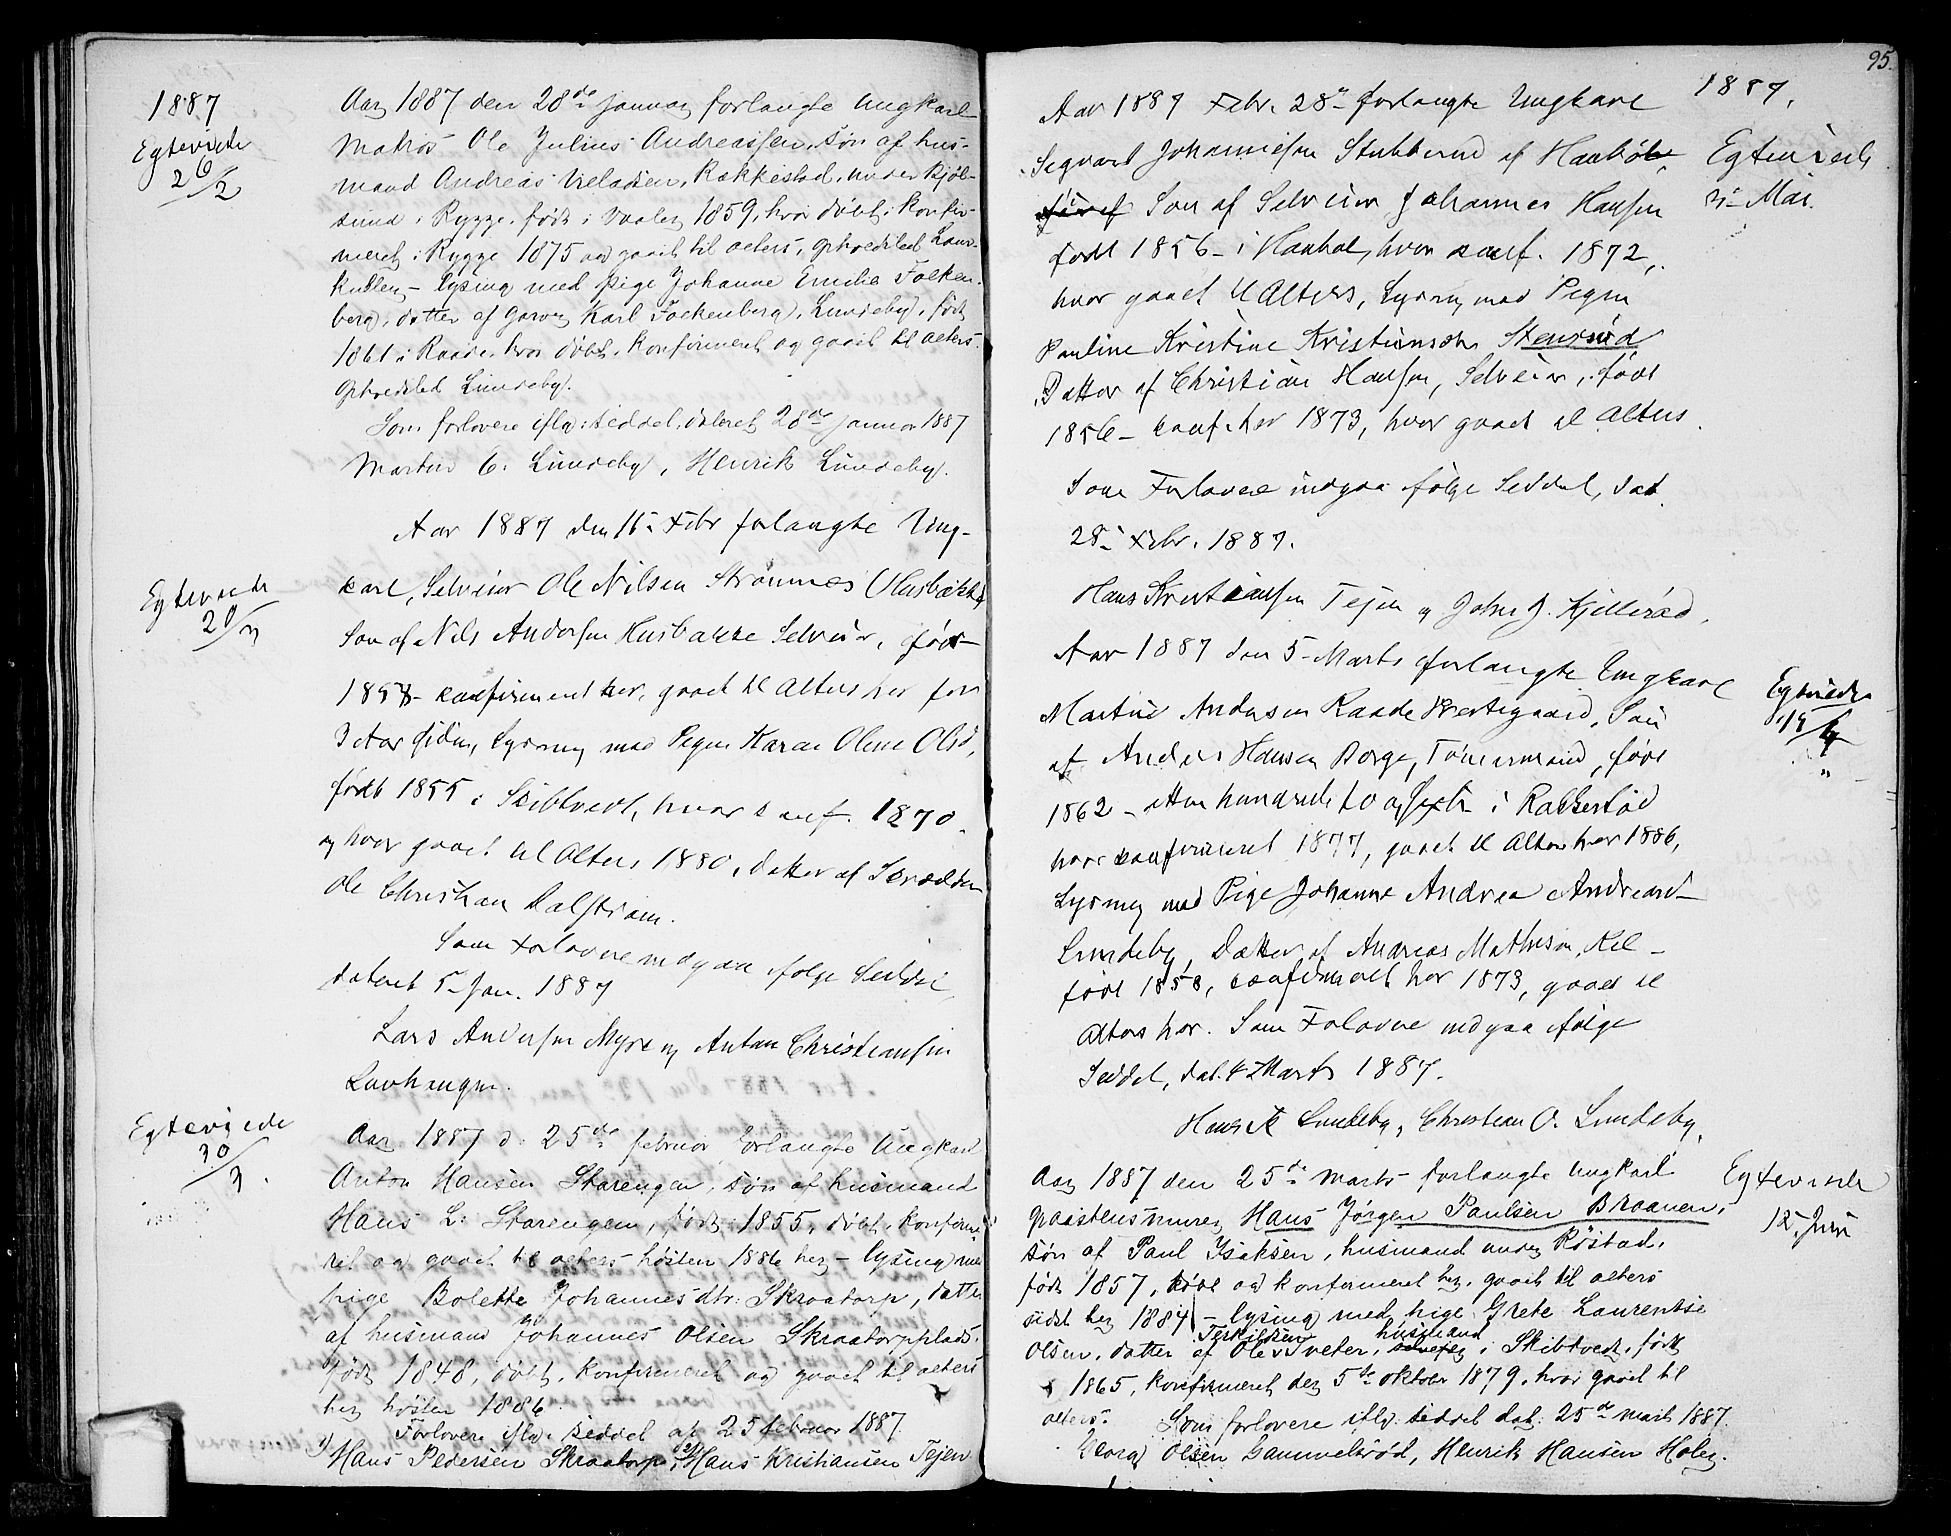 1887
Egteviede
26/2
Aar 1887 den 28de januar forlangte Ungkarl
Matros Ole Julius Andreassen, søn af hus-
mand Andreas Rakkestad, under
sund i Rygge, født i Vaaler 1859, hvor døbt, konfir-
meret i Rygge 1875 og gaaet til alters, opholdssted Laur-
kullen - lysing med pige Johanne Emilie Falken-
berg, datter af garver Karl Falkenberg, Lundeby, født
1861 i Raade, hvor døbt, konfirmeret og gaaet til alters.
Opholdssted Lundeby.
Som forlovere iflg. seddel, dateret 28de januar 1887
Martin C. Lundeby, Henrik Lundeby.
Aar 1887 den 15. Febr forlangte Ung-
Egteviede
20/3
karl, Selveier Ole Nilsen Strømnes (Husbakke)
Søn af Nils Andersen Husbakke Selveier, født
1858 - konfirmeret her, gaaet til Alters her for
3 Aar siden, Lysning med Pigen Karen Oline Olsd,
født 1855 i Skibtvedt, hvor conf. 1870.
og hvor gaaet til Alters 1880, Datter af Skrædder
Ole Christian Dalstrøm.
Som Forlovere indgaa ifølge Seddel,
dateret 5 Jan. 1887
Lars Andersen Myre og Anton Christiansen
Egteviede
30/3.
Aar 1887 d. 25de februar forlangte Ungkarl
Anton Hansen Starengen, søn af husmand
Hans L. Starengen, født 1855, døbt, konfirme-
ret og gaaet til alters høsten 1886 her - lysing med
pige Bolette Johannesdtr. Skraatorp, datter
af husmand Johannes Olsen Skraatorpplads.
født 1848, døbt, konfirmeret og gaaet til alters
her høsten 1886.
Forlovere iflg. seddel af 25 februar 1887.
1) Hans Pedersen Skraatorp, 2) Hans Kristiansen Tejen
95.
1887.
Aar 1887 Febr. 28de forlangte Ungkarl
Segvard Johannesen Stubberud af Haabøl,
Søn af Selveier Johannes Hansen
Egteviede
Mai.
født 1856 - i Haabøl, hvor conf. 1872,
hvor gaaet til Alters, Lysning med Pigen
Pauline Kristine Kristiansdtr Stensrød
Datter af Christian Hansen, Selveier, født
1856 - conf. her 1873, hvor gaaet til Alters.
Som Forlovere indgaa ifølge Seddel, dat.
28. Febr. 1887.
Hans Kristiansen Tejen og Johs J. Kjillerød.
Aar 1887 den 5. Marts forlangte Ungkarl
Egteviede
19/4
Martin Andersen Raade Prestegaard, Søn
af Anders Hansen Borge, Tømmermand, født
1862 - atten hundrede to og sexti i Rakkestad
hvor konfirmeret 1877, gaaet til Alters her 1886,
Lysning med Pige Johanne Andrea Andreasd-
Lundeby, Datter af Andreas Mathisen,
født 1858, confirmeret her 1873, gaaet til
Alters her. Som Forlovere indgaa ifølge
Seddel, dat. 4 Marts 1887.
Hans A Lundeby, Christian O. Lundeby.
Aar 1887 den 25de marts forlangte ungkarl
Egteviede
12. Juni
graastensmurer Hans Jørgen Paulsen Braanen,
søn af Paul Isaksen, husmand under Røstad,
født 1857, døbt og konfirmeret her, gaaet til alters
sidst her 1884 - lysing med pige Grete Laurentse
Olsen, datter af Ole Terkildsen Tveter, husmand selveier i Skibtvedt, født
1865, konfirmeret der 5te oktober 1879, hvor gaaet til
alters. Som forlovere iflg. seddel dat. 25de marts 1887.
Georg Olsen Gammelsrød, Henrik Hansen Holer.